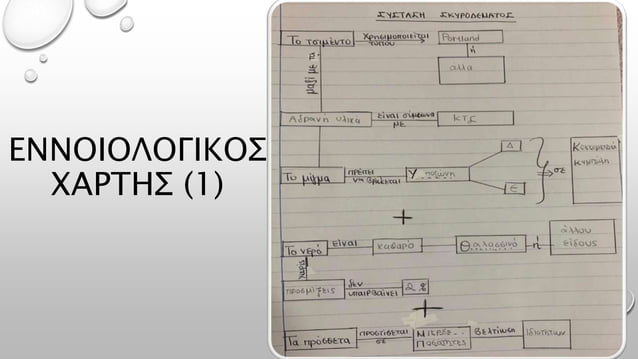 ΕΝΝΟΙΟΛΟΓΙΚΟΣ
ΧΑΡΤΗΣ (1)
ΣΥΣΤΑΣΗ ΣΚΥΡΟΔΕΜΑΤΟΣ
Το τσιμέντο Χρησιμοποιείται τύπου Portland
ή
άλλα
μαζί με τα
Αδρανή υλικά είναι σύμφωνα ΜΕ ΚΤΣ
Το μίγμα πρέπει να βρίσκεται Υποζώνη Δ Ε σε
+
Το νερό είναι καθαρό Θαλασσινό ή άλλου είδους
χωρίς
προσμίξεις δεν υπερβαίνει 2 %
+
Τα πρόσθετα προστίθεται σε Μικρές Ποσότητες Βελτίωση Ιδιοτήτων